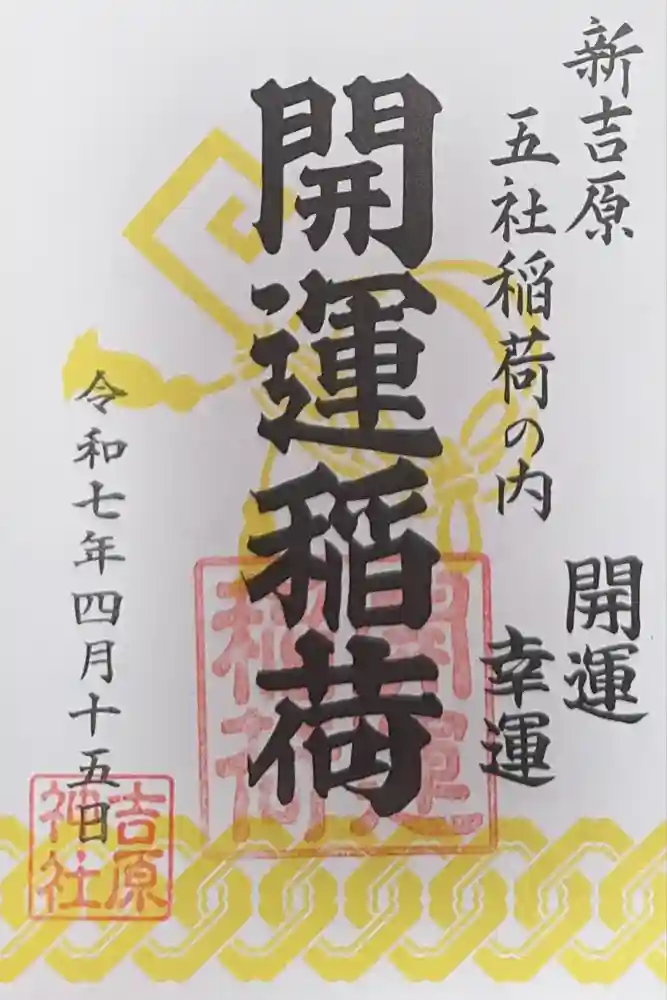 新吉原
五社稲荷の内
開運
幸運
開運稲荷
開運
稲荷
令和七年四月十五日
吉原
神社